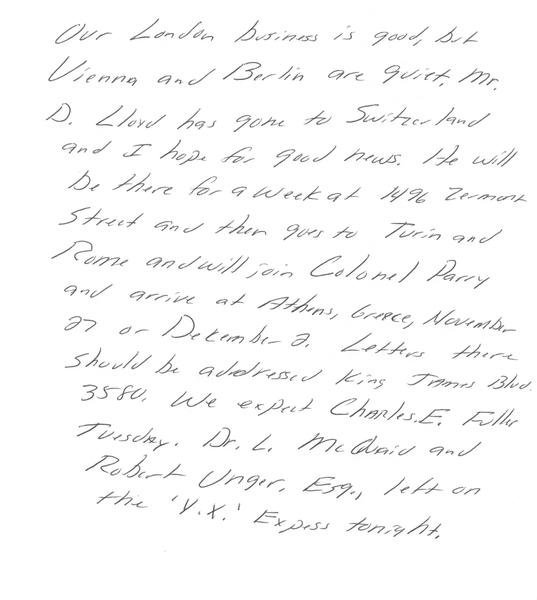 Our London business is good, but
Vienna and Berlin are quiet. Mr.
D. Lloyd has gone to Switzerland
and I hope for good news. He will
be there for a week at 1496 Zermont
Street and then goes to Turin and
Rome and will join Colonel Parry
and arrive at Athens, Greece, November
27 or December 2. Letters there
should be addressed King James Blvd.
3580. We expect Charles E. Fuller
Tuesday. Dr. L. McQuaid and
Robert Unger, Esq., left on
the 'Y.X.' Expess tonight.